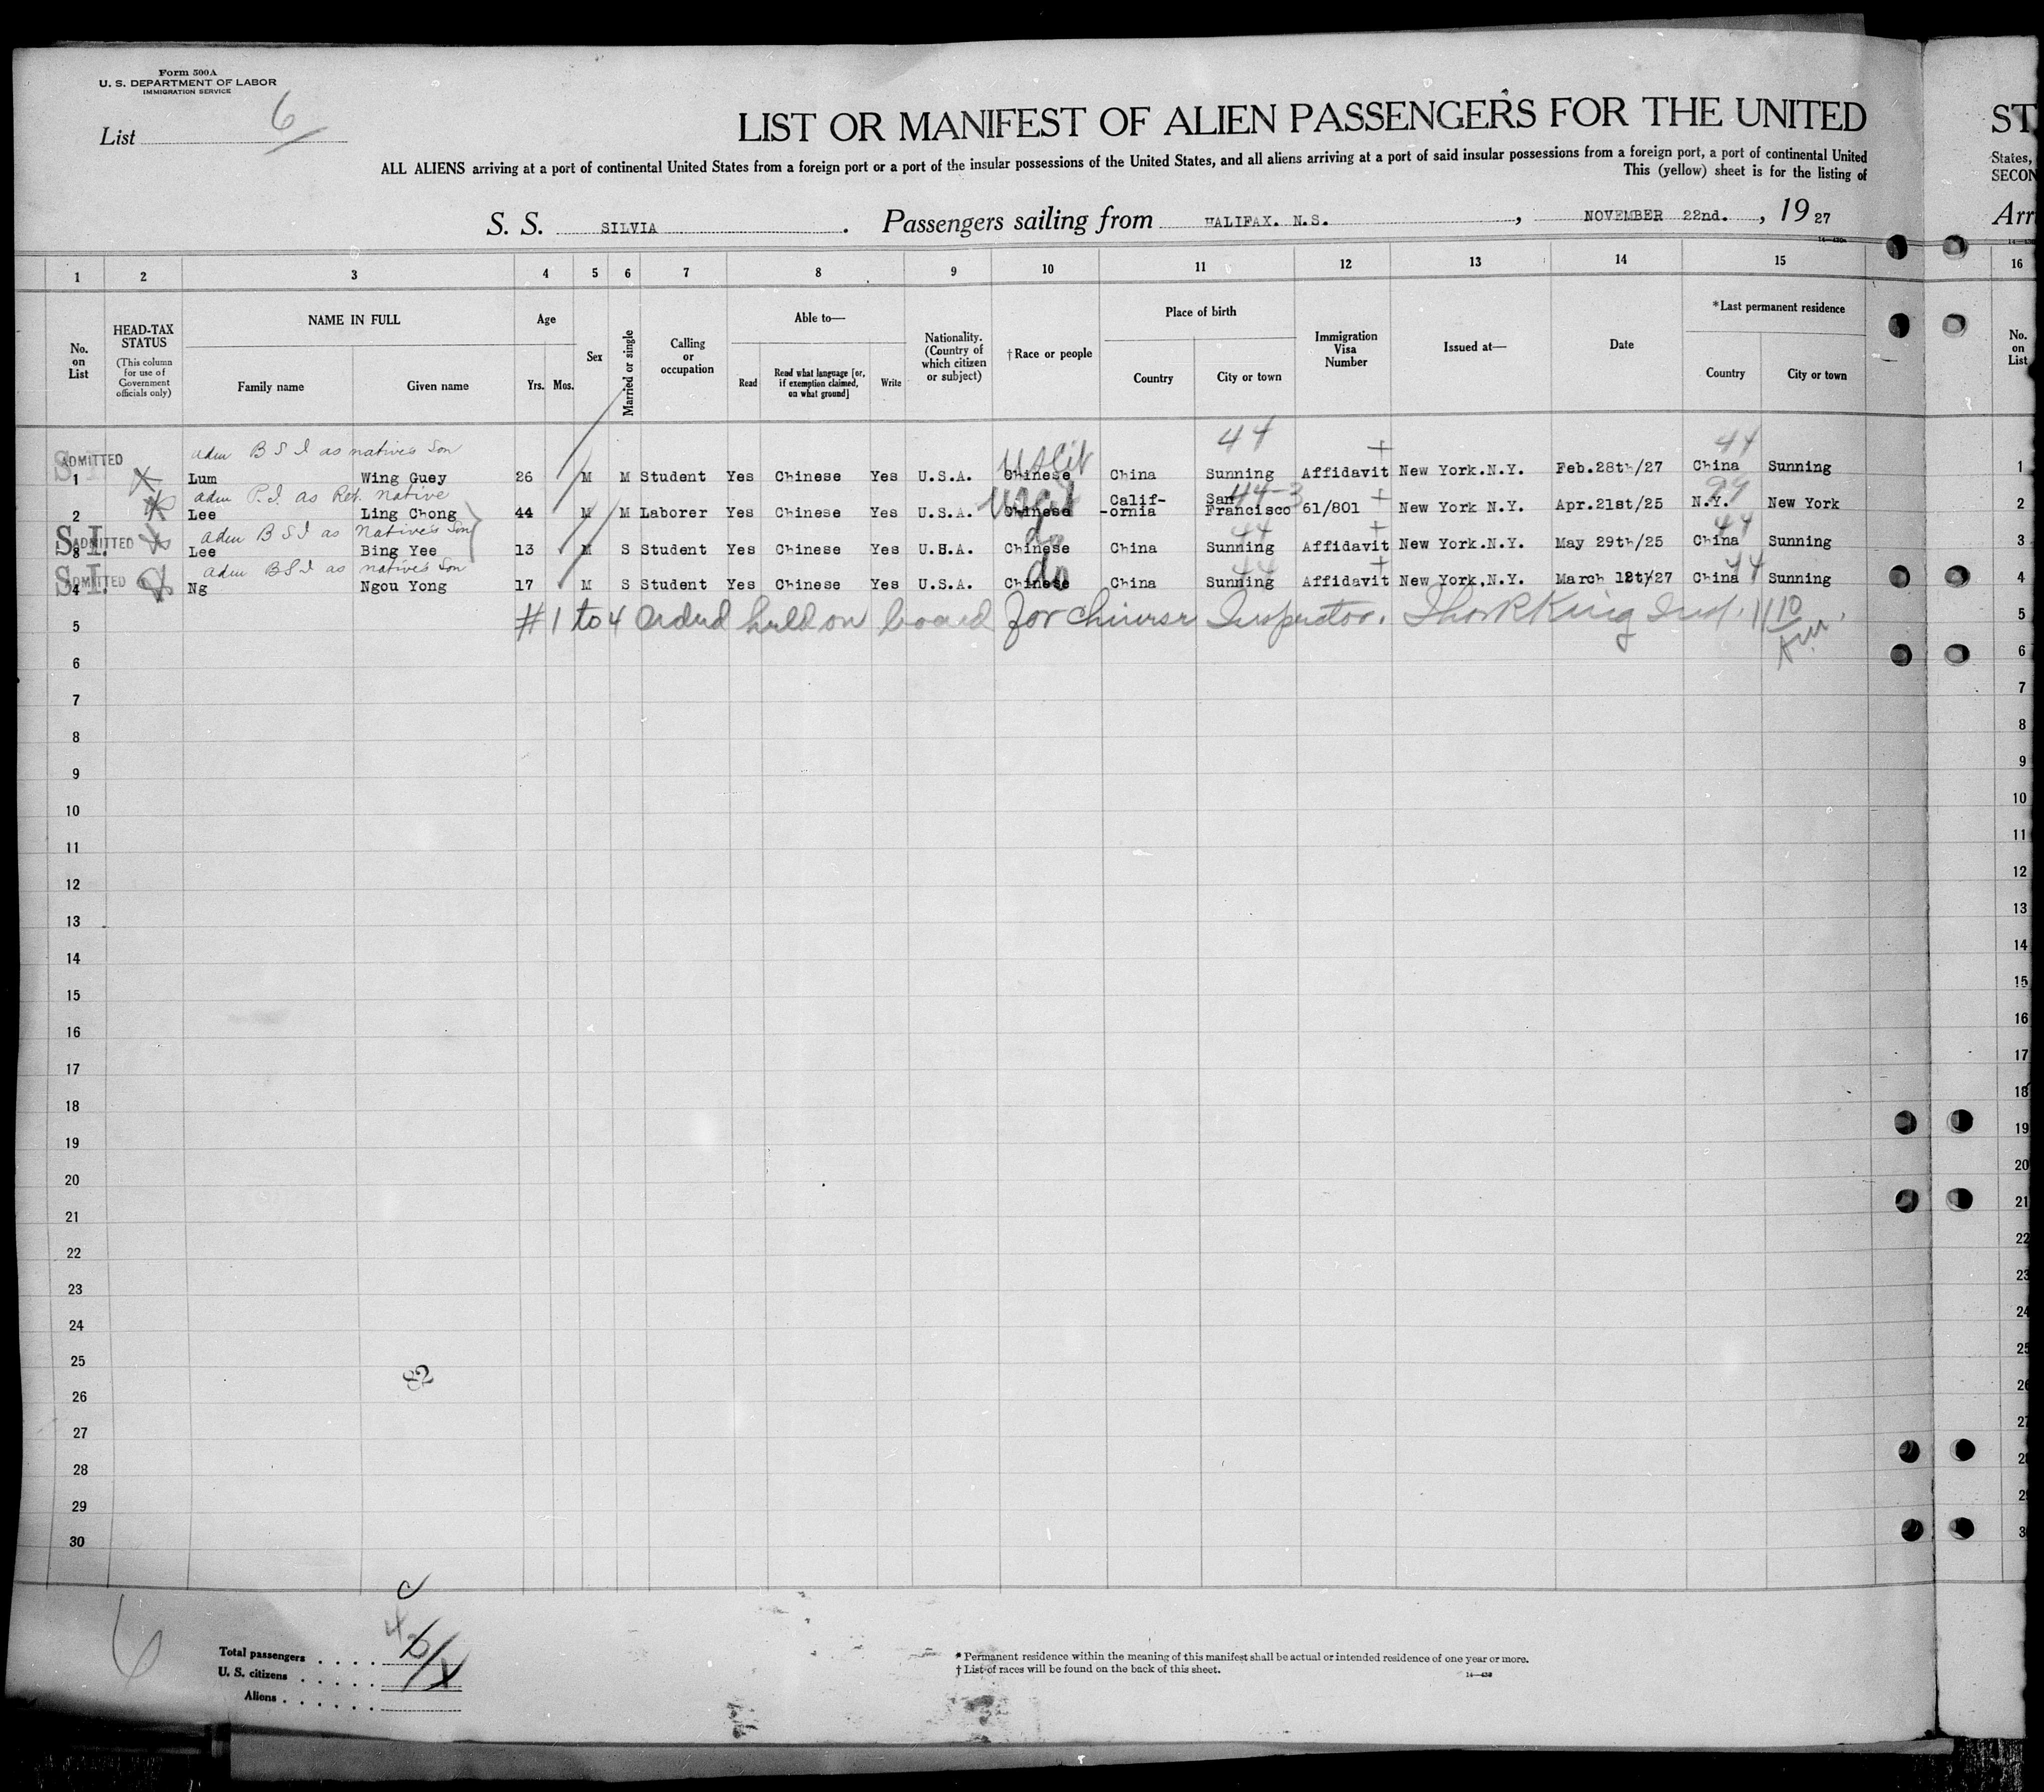 Form 500A
U. S. DEPARTMENT OF LABOR
IMMIGRATION SERVICE
List 6
LIST OR MANIFEST OF ALIEN PASSENGERS FOR THE UNITED
ST
ALL ALIENS arriving at a port of continental United States from a foreign port or a port of the insular possessions of the United States, and all aliens arriving at a port of said insular possessions from a foreign port, a port of continental United
States,
This (yellow) sheet is for the listing of
SECON
S. S. SILVIA. Passengers sailing from HALIFAX. N.S., NOVEMBER 22nd., 1927
Arr
1 2 3 4 5 6 7 8 9 10 11 12 13 14 15 16
No. on List
HEAD-TAX STATUS
(This column for use of Government officials only)
NAME IN FULL
Family name Given name
Age
Yrs. Mos.
Sex
Married or single
Calling or occupation
Able to—
Read
Read what language [or, if exemption claimed, on what ground]
Write
Nationality. (Country of which citizen or subject)
†Race or people
Place of birth
Country City or town
Immigration Visa Number
Issued at—
Date
*Last permanent residence
Country City or town
No. on List
adm B S I as natives son 44 44
ADMITTED
1 Lum Wing Guey 26 M M Student Yes Chinese Yes U.S.A. Chinese US Cit China Sunning Affidavit New York.N.Y. Feb.28th/27 China Sunning 1
adm P.I. as Ret. native
2 Lee Ling Chong 44 M M Laborer Yes Chinese Yes U.S.A. Chinese Calif-ornia San Francisco 61/801 New York N.Y. Apr.21st/25 N.Y. New York 2
adm B S I as Native's Son
S.I. ADMITTED
3 Lee Bing Yee 13 M S Student Yes Chinese Yes U.S.A. Chinese do China Sunning 44 Affidavit New York.N.Y. May 29th/25 China 44 Sunning 3
adm B S I as native's son
S.I. ADMITTED
4 Ng Ngou Yong 17 M S Student Yes Chinese Yes U.S.A. Chinese do China Sunning 44 Affidavit New York,N.Y. March 12t/27 China 44 Sunning 4
#1 to 4 ordered held on board for Chinese Inspector.
5 5
6 6
7 7
8 8
9 9
10 10
11 11
12 12
13 13
14 14
15 15
16 16
17 17
18 18
19 19
20 20
21 21
22 22
23 23
24 24
25 25
82
26 26
27 27
28 28
29 29
30 30
6
Total passengers
U. S. citizens
Aliens
* Permanent residence within the meaning of this manifest shall be actual or intended residence of one year or more.
† List of races will be found on the back of this sheet.